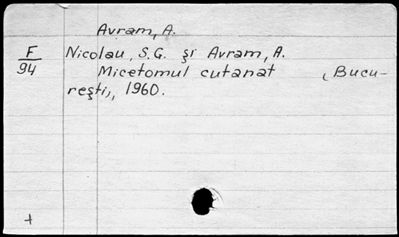 Avram, A.
F
94
Nicolau, S.G. şi Avram, A.
Micetomul cutanat (Bucu-
reşti), 1960.
+